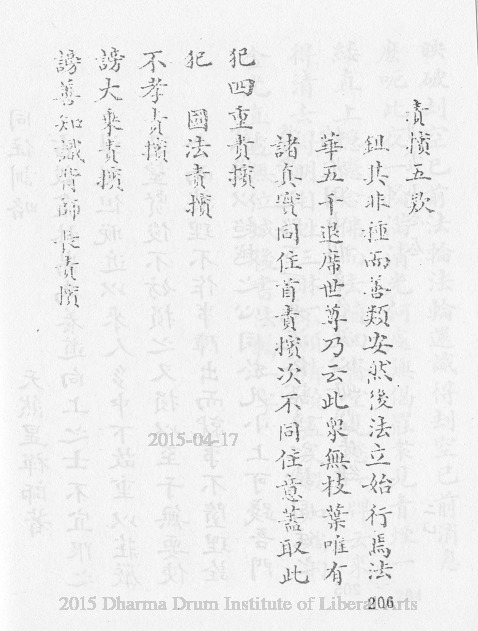 責擯五欵
鉏其非種而善類安然後法立始行焉法
華五千退席世尊乃云此衆無枝葉唯有
諸真實同住首責擯次不同住意蓋取此
犯四重責擯
犯 國法責擯
不孝責擯
謗大乘責擯
謗善知識背師長責擯
2015-04-17
206
2015 Dharma Drum Institute of Liberal Arts